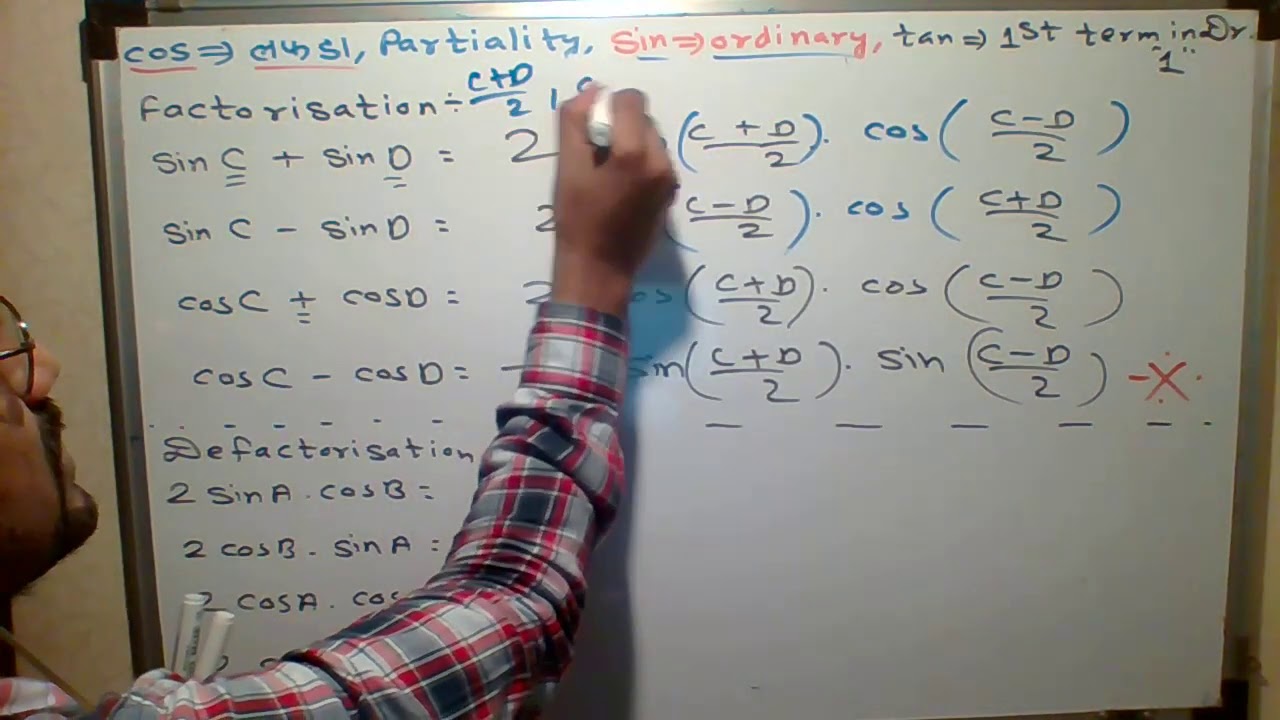 cos ⇒ लफडा, Partiality, Sin ⇒ ordinary, tan ⇒ 1st term in Dr.
"1"
Factorisation ÷ C+D/2 ,
sin C + sin D = 2 (C + D/2). cos (C-D/2)
sin C - sin D = 2 (C-D/2). cos (C+D/2)
cos C + cos D = 2 cos (C+D/2). cos (C-D/2)
cos C - cos D = - sin (C+D/2). sin (C-D/2) -X-
Defactorisation
2 sin A . cos B =
2 cos B . sin A =
2 cos A . cos
2